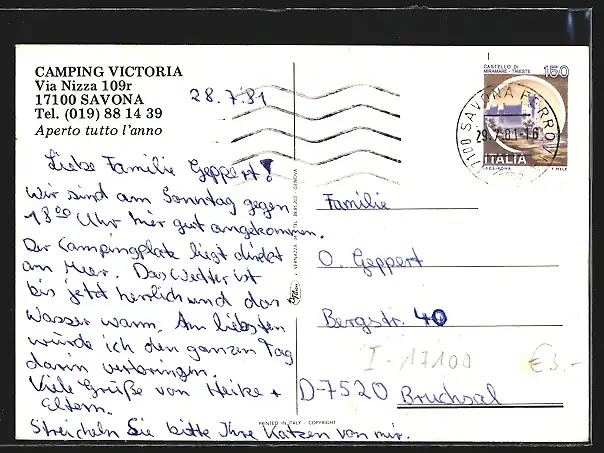 CAMPING VICTORIA
Via Nizza 109r
17100 SAVONA
Tel. (019) 88 14 39
Aperto tutto l'anno
28.7.81
Liebe Familie Geppert!
Wir sind am Sonntag gegen
18⁰⁰ Uhr hier gut angekommen.
Der Campingplatz liegt direkt
am Meer. Das Wetter ist
bis jetzt herrlich und das
Wasser warm. Am liebsten
würde ich den ganzen Tag
darin verbringen.
Viele Grüße von Heike +
Eltern.
Streicheln Sie bitte Ihre Katzen von mir.
CASTELLO DI
MIRAMARE - TRIESTE
150
ITALIA
17100 SAVONA FERROVIA
29.7.81-16
Familie
O. Geppert
Bergstr. 40
I-17100
€3.-
D-7520 Bruchsal
PRINTED IN ITALY - COPYRIGHT